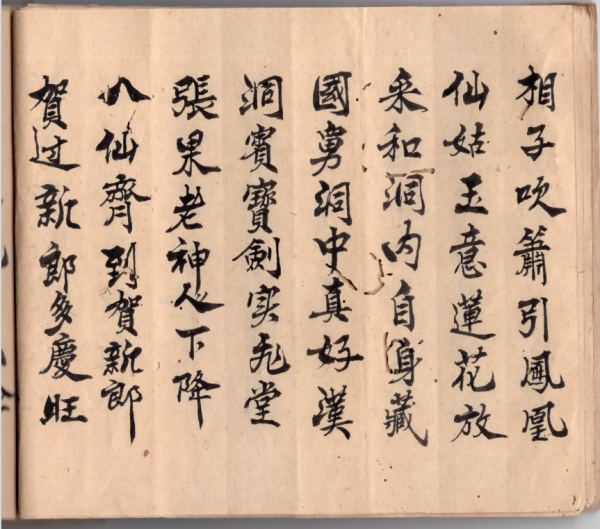 相子吹簫引鳳凰
仙姑玉意蓮花放
采和洞内自身藏
國舅洞中真好漢
洞賓寶劍实堂
張果老神人下降
八仙齊到賀新郎
賀过新郎多慶旺